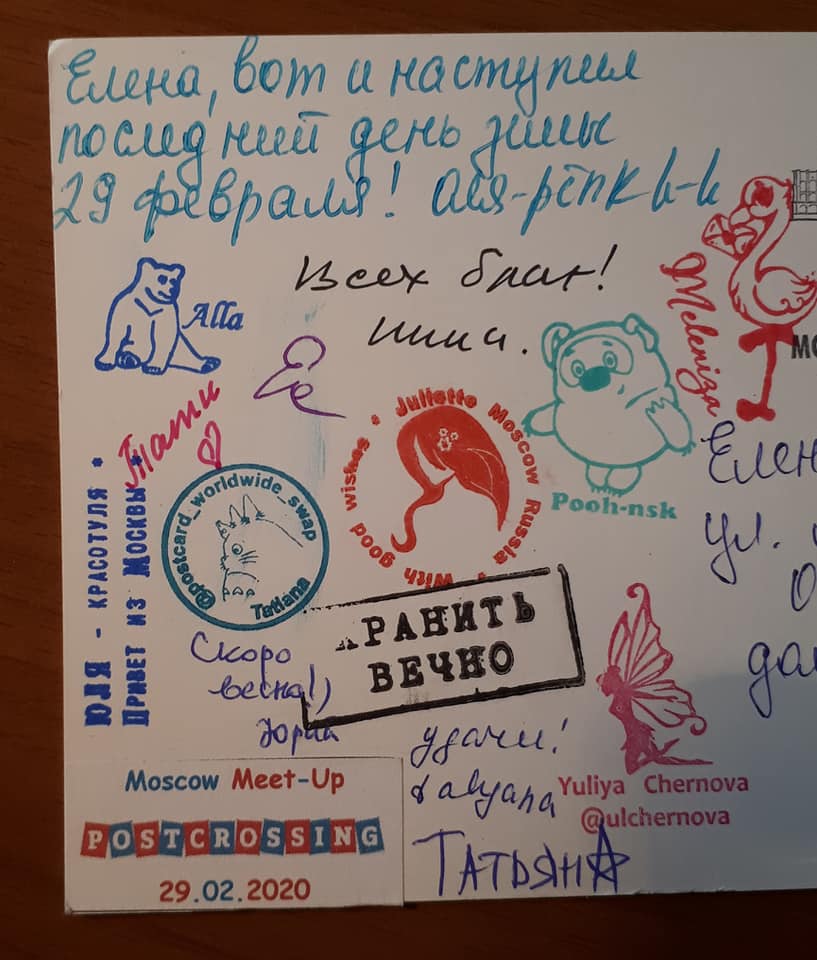 Елена, вот и наступил
последний день зимы
29 февраля!
Всех благ!
Alla
Meleniza
МО
Тати
• Juliette Moscow Russia • With good wishes
Pooh-nsk
@postcard_worldwide_swap
Tatiana
ЮЛЯ - КРАСОТУЛЯ *
ПРИВЕТ ИЗ МОСКВЫ *
Елен
ул.
ХРАНИТЬ
ВЕЧНО
Скоро
весна!)
Юрий
удачи!
Yuliya Chernova
@ulchernova
Moscow Meet-Up
POSTCROSSING
29.02.2020
ТАТЬЯНА